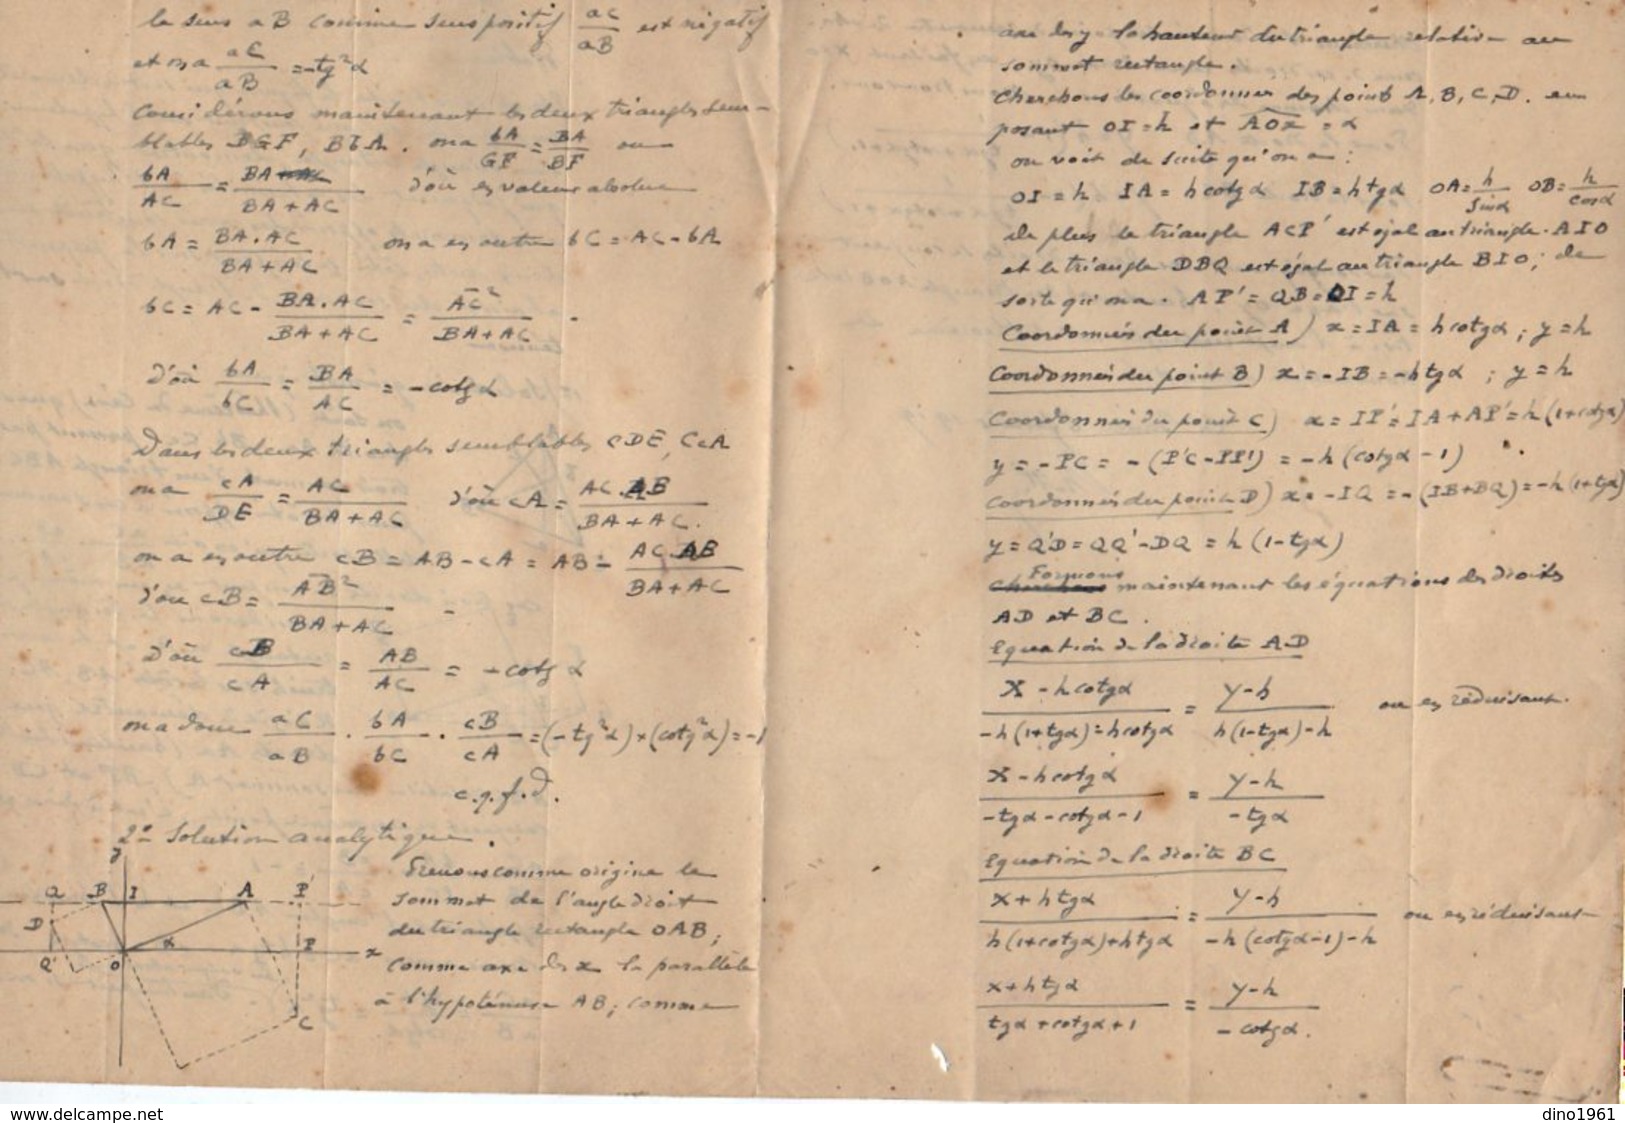 le sens aB comme sens positif aC/aB est négatif
et on a aC/aB = -tg²α
Considérons maintenant les deux triangles sem-
blables BGF, BbA. on a bA/GF = BA/BF ou
bA/AC = BA/BA+AC d'où en valeur absolue
bA = BA.AC/BA+AC on a en outre bC = AC-bA
bC = AC - BA.AC/BA+AC = AC²/BA+AC
d'où bA/bC = BA/AC = -cotg α
Dans les deux triangles semblables cDE, CcA
on a cA/DE = AC/BA+AC d'où cA = AC.AB/BA+AC.
on a en outre cB = AB-cA = AB- AC.AB/BA+AC
d'où cB = AB²/BA+AC
d'où cB/cA = AB/AC = -cotg α
on a donc aC/aB . bA/bC . cB/cA = (-tg²α)×(cotg²α) = -1
c.q.f.d.
2º Solution analytique.
y
Q B I A P'
D
α
Q' O P x
C
Prenons comme origine le
sommet de l'angle droit
du triangle rectangle OAB;
comme axe des x la parallèle
à l'hypoténuse AB; comme
axe des y la hauteur du triangle relative au
sommet rectangle.
Cherchons les coordonnées des points A, B, C, D. en
posant OI = h et AOx = α
on voit de suite qu'on a:
OI = h IA = h cotg α IB = h tg α OA = h/sin α OB = h/cos α
De plus le triangle ACP' est égal au triangle AIO
et le triangle DBQ est égal au triangle BIO; de
sorte qu'on a. AP' = QB = OI = h
Coordonnées du point A) x = IA = h cotg α; y = h
Coordonnées du point B) x = -IB = -h tg α; y = h
Coordonnées du point C) x = IP' = IA + AP' = h(1+cotg α)
y = -PC = -(P'C-PP') = -h(cotg α-1)
Coordonnées du point D) x = -IQ = -(IB+BQ) = -h(1+tg α)
y = Q'D = QQ'-DQ = h(1-tg α)
Formons maintenant les équations des droites
AD et BC.
Equation de la droite AD
x-h cotg α/-h(1+tg α)-h cotg α = y-h/h(1-tg α)-h ou en réduisant.
x-h cotg α/-tg α-cotg α-1 = y-h/-tg α
Equation de la droite BC
x+h tg α/h(1+cotg α)+h tg α = y-h/-h(cotg α-1)-h ou en réduisant
x+h tg α/tg α+cotg α+1 = y-h/-cotg α.
www.delcampe.net
dino1961